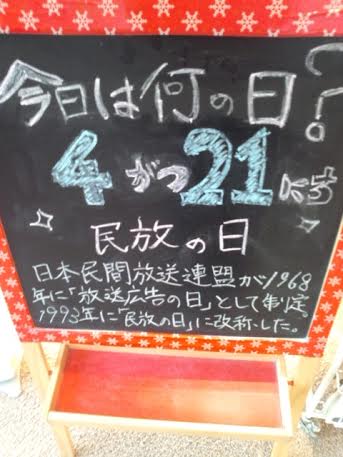 今日は何の日?
4がつ21にち
民放の日
日本民間放送連盟が1968
年に「放送広告の日」として制定。
1993年に「民放の日」に改称した。